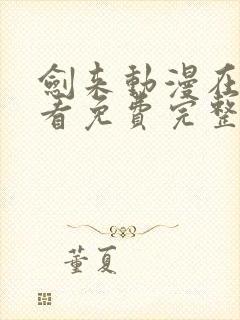 劍来動漫在
看免費完整
董夏